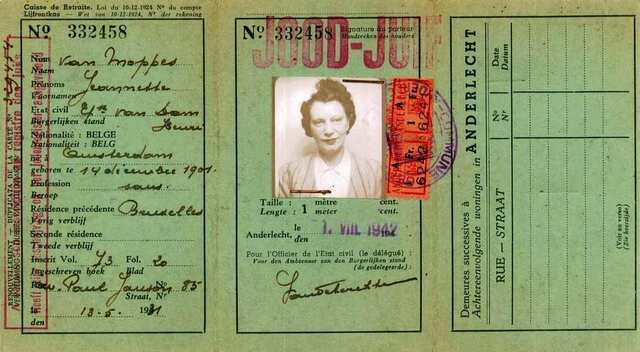 Caisse de Retraite. Loi du 10-12-1924, Nº du compte
Lijfrentkas — Wet van 10-12-1924, Nr der rekening
Nº 332458
Nom
Naam
van Moppes
Prénoms
Voornamen
Jeannette
Etat civil
Burgerlijken stand
van Dam
Henri
Nationalité : BELGE
Nationaliteit : BELG
Né à
Amsterdam
geboren te 14 décembre 1901
Profession
Beroep
sans
Résidence précédente
Vorig verblijf
Bruxelles
Seconde résidence
Tweede verblijf
Inscrit Vol. 73 Fol. 20
Ingeschreven boek Blad
Rue Paul Janson Nº 85
Straat, Nr
le
den
13-5 1941
RENOUVELLEMENT — DUPLICATA DE LA CARTE Nº
Nº 332458
Signature du porteur
JOOD-JUIF
Taille : mètre cent.
Lengte : 1 meter cent.
Anderlecht, le
den
1. VIII. 1942
Pour l'Officier de l'Etat civil (le délégué) :
Voor den Ambtenaar van den Burgerlijken stand
(de gedelegeerde) :
Demeures successives à
Achtereenvolgende woningen in
ANDERLECHT
RUE — STRAAT
Nº
Nr
Date
Datum
(Voir au verso)
(Zie keerzijde)